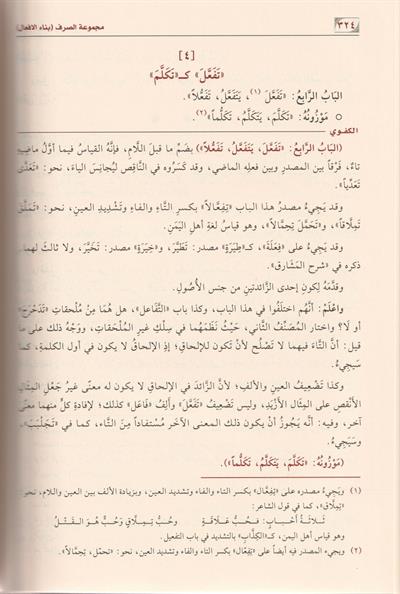 ٣٢٤ مجموعة الصرف (بناء الافعال)
[٤]
«تَفَعَّلَ» كـ«تَكَلَّمَ»
البَابُ الرَّابِعُ: «تَفَعَّلَ (١)، يَتَفَعَّلُ، تَفَعُّلاً».
○ مَوْزُونُهُ: «تَكَلَّمَ، يَتَكَلَّمُ، تَكَلُّماً»(٢).
الكفوي
(البَابُ الرَّابِعُ: «تَفَعَّلَ، يَتَفَعَّلُ، تَفَعُّلاً») بضَمِّ ما قبل اللَّام، فإنَّهُ القياسُ فيما أوَّلُ ماضيهِ
تاءٌ، فَرْقاً بين المصدرِ وبين فعلِه الماضي، وقد كَسَرُوه في النَّاقِصِ ليُجانِسَ الياءَ، نحو: «تَعَدَّى
تَعَدِّياً».
وقد يَجِيءُ مصدرُ هذا الباب «تِفِعَّالاً» بكسرِ التَّاءِ والفاءِ وتَشْدِيدِ العينِ، نحو: «تَمَلَّقَ
تِمِلَّاقاً»، و«تَحَمَّلَ تِحِمَّالاً»، وهو قياسُ لغةِ أهلِ اليَمَنِ.
وقد يَجِيءُ على «فِعَلَةَ»، كـ«طِيَرَةٍ» مصدر: تَطَيَّرَ، و«خِيَرَةٍ» مصدر: تَخَيَّرَ، ولا ثالثَ لهما
ذكره في «شرح المَشَارق».
وقدَّمَهُ لكونِ إحدى الزَّائدتينِ من جنسِ الأُصُولِ.
واعْلَمْ: أنَّهُم اختلَفُوا في هذا الباب، وكذا باب «التَّفَاعل»، هل هُمَا مِنْ مُلْحقاتِ «تَدَحْرَجَ»
أو لَا؟ واختار المُصَنِّفُ الثَّاني، حَيْثُ نَظَمَهُما في سِلْكِ غيرِ المُلْحَقَاتِ، ووَجْهُ ذلك على ما
قيل: أنَّ التَّاءَ فيهما لا تَصْلُحُ لأنْ تَكُونَ للإلحاقِ؛ إذِ الإلحاقُ لا يكون في أول الكلمةِ، كما
سَيَجِيءُ.
وكذا تَضْعِيفُ العينِ والألفِ؛ لأنَّ الزَّائدَ في الإلحاقِ لا يكون له معنًى غيرُ جَعْلِ المِثالِ
الأَنْقصِ على المِثَالِ الأَزْيَدِ، وليس تَضْعِيفُ «تَفَعَّلَ» وألِفُ «فَاعَل» كذلك؛ لإفادةِ كلٍّ منهما معنًى
آخر، وفيه: أنَّه يَجُوزُ أنْ يكون ذلك المعنى الآخَر مُسْتَفَاداً مِنَ التَّاءِ، كما في «تَجَلْبَبَ»،
وسَيَجِيءُ.
(مَوْزُونُهُ: «تَكَلَّمَ، يَتَكَلَّمُ، تَكَلُّماً»).
(١) ويَجِيءُ مصدره على «تِفِعَّال» بكسر التاء والفاء وتشديد العين، وبزيادة الألف بين العين واللام، نحو:
«تِمِلَّاق»، كما في قول الشاعر:
ثَلَاثَةُ أَحْبَابٍ: فَحُبُّ عَلَاقَةٍ وحُبُّ تِمِلَّاقٍ وَحُبٌّ هُـوَ القَـتْـلُ
وهو قياس أهل اليمن، كـ«الكِذَّابِ» بالتشديد في باب التفعيل.
(٢) ويجيء المصدر فيه أيضاً على «تِفِعَّال» بكسر التاء والفاء وتشديد العين، نحو: «تحمّل، تِحِمَّالاً».